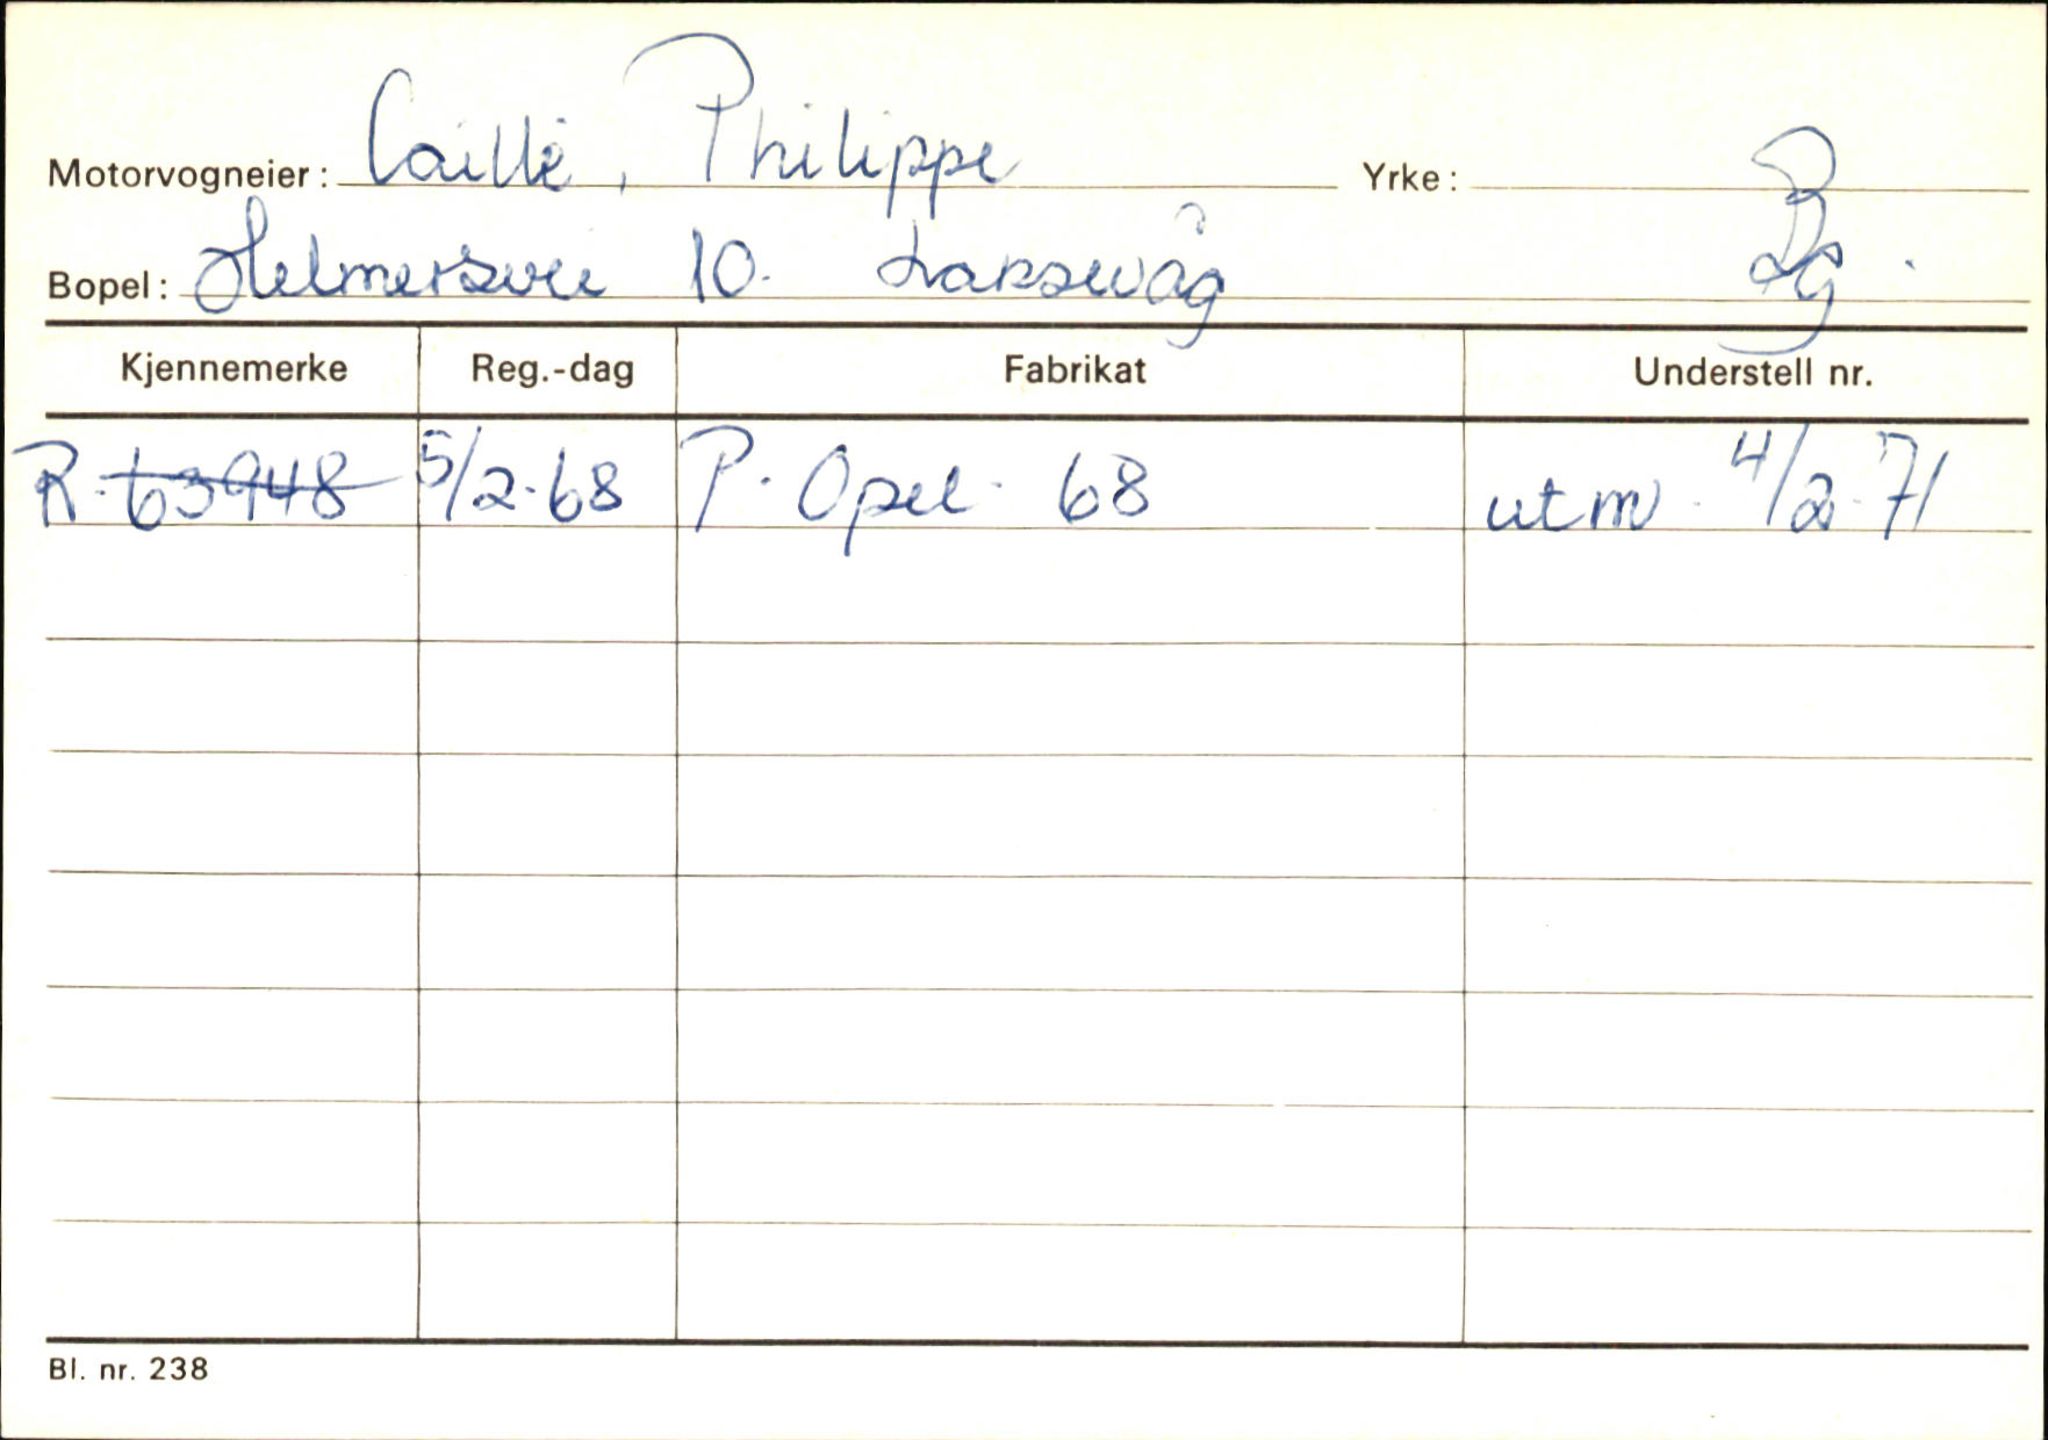 Motorvogneier: Caillé, Philippe Yrke:
Bopel: Helmersvei 10. Laksevåg Bg.
Kjennemerke Reg.-dag Fabrikat Understell nr.
R-63948 5/2-68 P. Opel 68 utm. 4/2-71
Bl. nr. 238